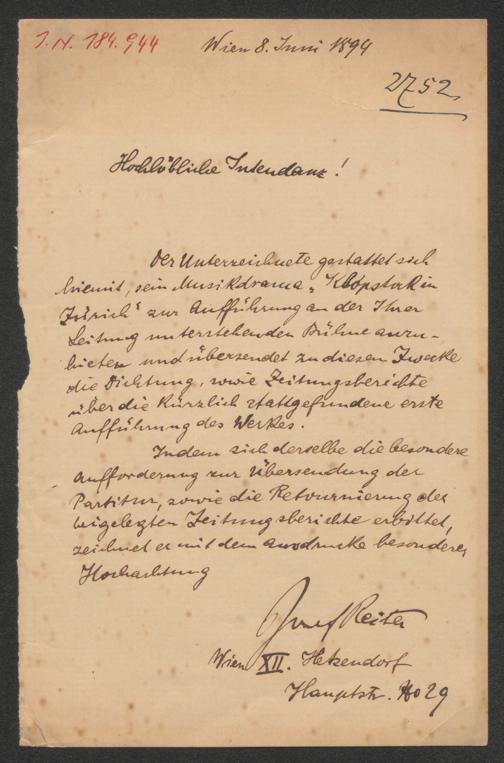 I.N. 184.944
Wien 8. Juni 1894
2752
Hochlöbliche Intendanz!
Der Unterzeichnete gestattet sich
hiemit, sein Musikdrama „Klopstock in
Zürich“ zur Aufführung an der Ihrer
Leitung unterstehenden Bühne anzu-
bieten und übersendet zu diesem Zwecke
die Dichtung, sowie Zeitungsberichte
über die kürzlich stattgefundene erste
Aufführung des Werkes.
Indem sich derselbe die besondere
Aufforderung zur Übersendung der
Partitur, sowie die Retournierung der
beigelegten Zeitungsberichte erbittet,
zeichnet er mit dem Ausdrucke besonderer
Hochachtung
Josef Reiter
Wien XII. Hetzendorf
Hauptstr. No 29